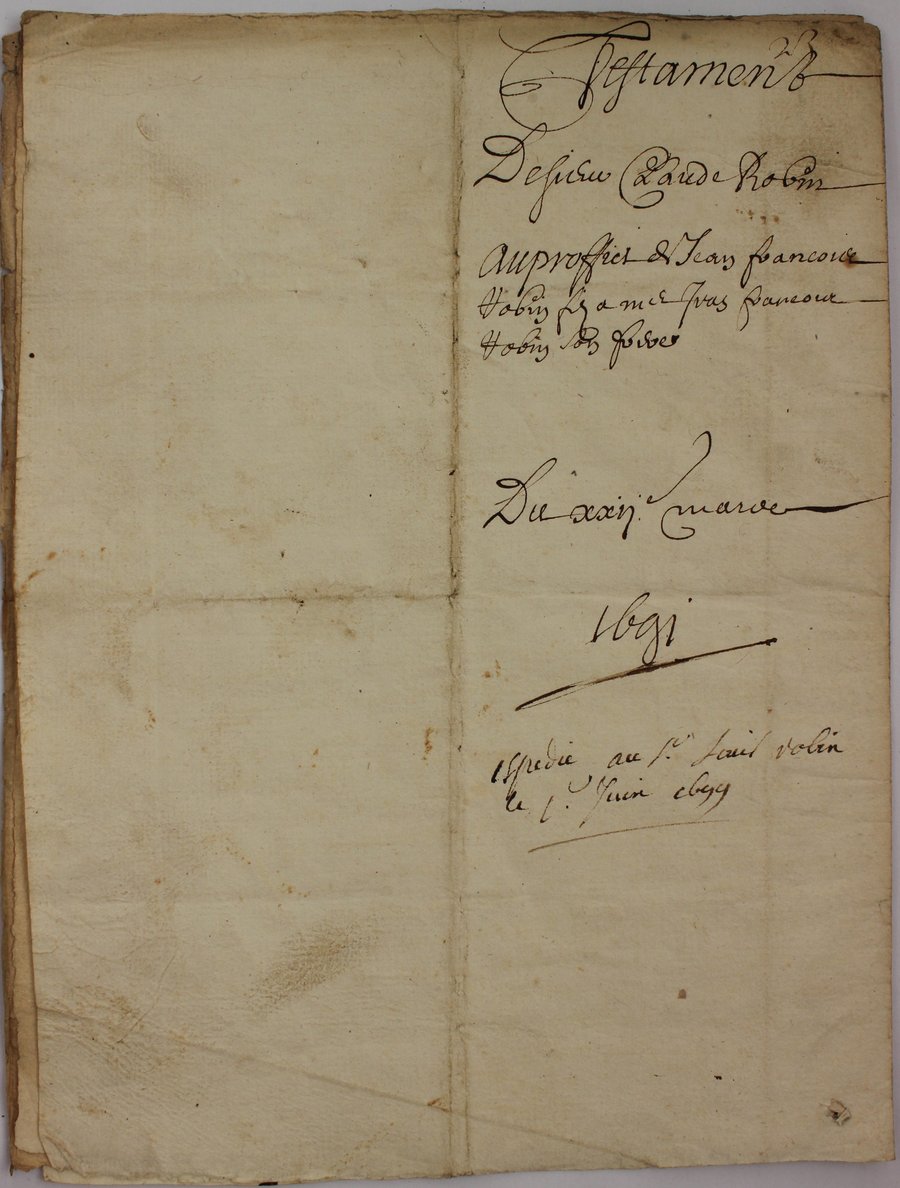 23
Testament
De sieur Claude Robin
au proffict de Jean francois
Robin filz a me Jean francois
Robin son frere
Du xxij.e mars
1691
expedie au sr. Louis robin
le 1r. Juin 1699